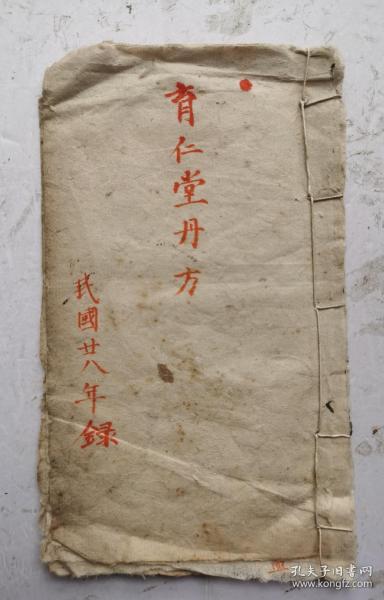 育仁堂丹方
民國廿八年録
孔夫子旧书网
www.kongfz.com